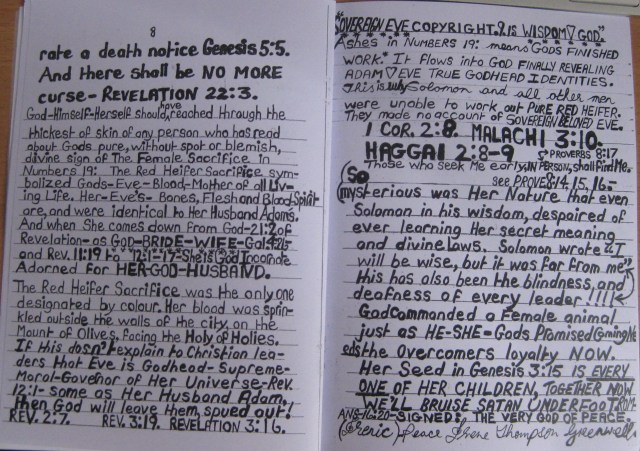 8
rate a death notice Genesis 5:5.
And there shall be NO MORE
curse - REVELATION 22:3.
God-Himself-Herself should have reached through the
thickest of skin of any person who has read
about Gods pure, without spot or blemish,
divine sign of The Female Sacrifice in
Numbers 19: The Red Heifer Sacrifice sym-
bolized Gods-Eve-Blood-Mother of all Liv-
ing Life. Her-Eve's-Bones, Flesh and Blood-Spirit
are, and were identical to Her Husband Adams.
And when She comes down from God-21:2 of
Revelation-as GOD-BRIDE-WIFE-Gal 4:26
and Rev. 11:19 to 12:1-17-She is God Incarnate
Adorned for HER-GOD-HUSBAND.
The Red Heifer Sacrifice was the only one
designated by colour. Her blood was sprin-
kled outside the walls of the city, on the
Mount of Olives, facing the Holy of Holies.
If this doesn't explain to Christian lea-
ders that Eve is Godhead-Supreme-
Moral-Govenor of Her Universe-Rev.
12:1-same as Her Husband Adam,
then God will leave them, spued out!
REV. 2:7. REV. 3:19. REVELATION 3:16.
"SOVEREIGN EVE COPYRIGHT. IS WISDOM ▽ GOD."
Ashes in NUMBERS 19: means GODS FINISHED
WORK." It flows into GOD FINALLY REVEALING
ADAM ▽ EVE TRUE GODHEAD IDENTITIES.
This is why Solomon and all other men
were unable to work out PURE RED HEIFER.
They made no account of SOVEREIGN BELOVED EVE.
1 COR. 2:8. MALACHI 3:10.
HAGGAI 2:8-9 PROVERBS 8:17
Those who seek Me early, IN PERSON, shall find Me.
(So see PROV 8:14, 15, 16-
mysterious was Her Nature that even
Solomon in his wisdom, despaired of
ever learning Her secret meaning
and divine laws. Solomon wrote "I
will be wise, but it was far from me"
this has also been the blindness, and
deafness of every leader!!!!
God commanded a Female animal
just as HE-SHE-Gods Promised Coming He
eds the Overcomers loyalty NOW.
Her Seed in Genesis 3:15 IS EVERY
ONE OF HER CHILDREN, TOGETHER NOW
WE'LL BRUISE SATAN UNDERFOOT ROM-
ANS-16:20-SIGNED: THE VERY GOD OF PEACE.
Peace Irene Thompson Greenwell